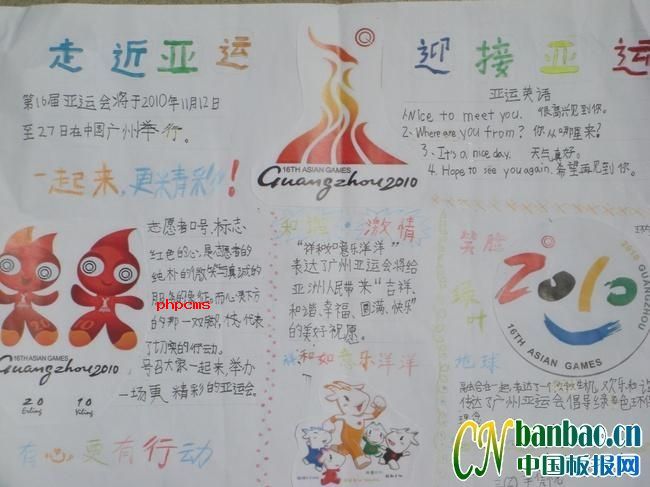 走近亚运
迎接亚运
第16届亚运会将于2010年11月12日
至27日在中国广州举行。
一起来,更精彩!
16TH ASIAN GAMES
Guangzhou 2010
亚运英语
1.Nice to meet you. 很高兴见到你。
2.Where are you from? 你从哪里来?
3、It's a nice day. 天气真好。
4. Hope to see you again. 希望再见到你。
16TH ASIAN GAMES
Guangzhou 2010
20
10
志愿者口号、标志
红色的心,是志愿者的
纯朴的微笑与真诚的
phpcms
的那一双脚,代表
了切实的行动。
号召大家一起来,举办
一场更精彩的亚运会。
有心更有行动
和谐·激情
"祥和如意乐洋洋"
表达了广州亚运会将给
亚洲人民带来"吉祥、
和谐、幸福、圆满、快乐"
的美好祝愿。
祥和如意乐洋洋
笑脸
绿叶
地球
2010
2010 GUANGZHOU
16TH ASIAN GAMES
融合在一起,表达了
传达了广州亚运会倡导绿色环保
CN banbao.cn
中国板报网